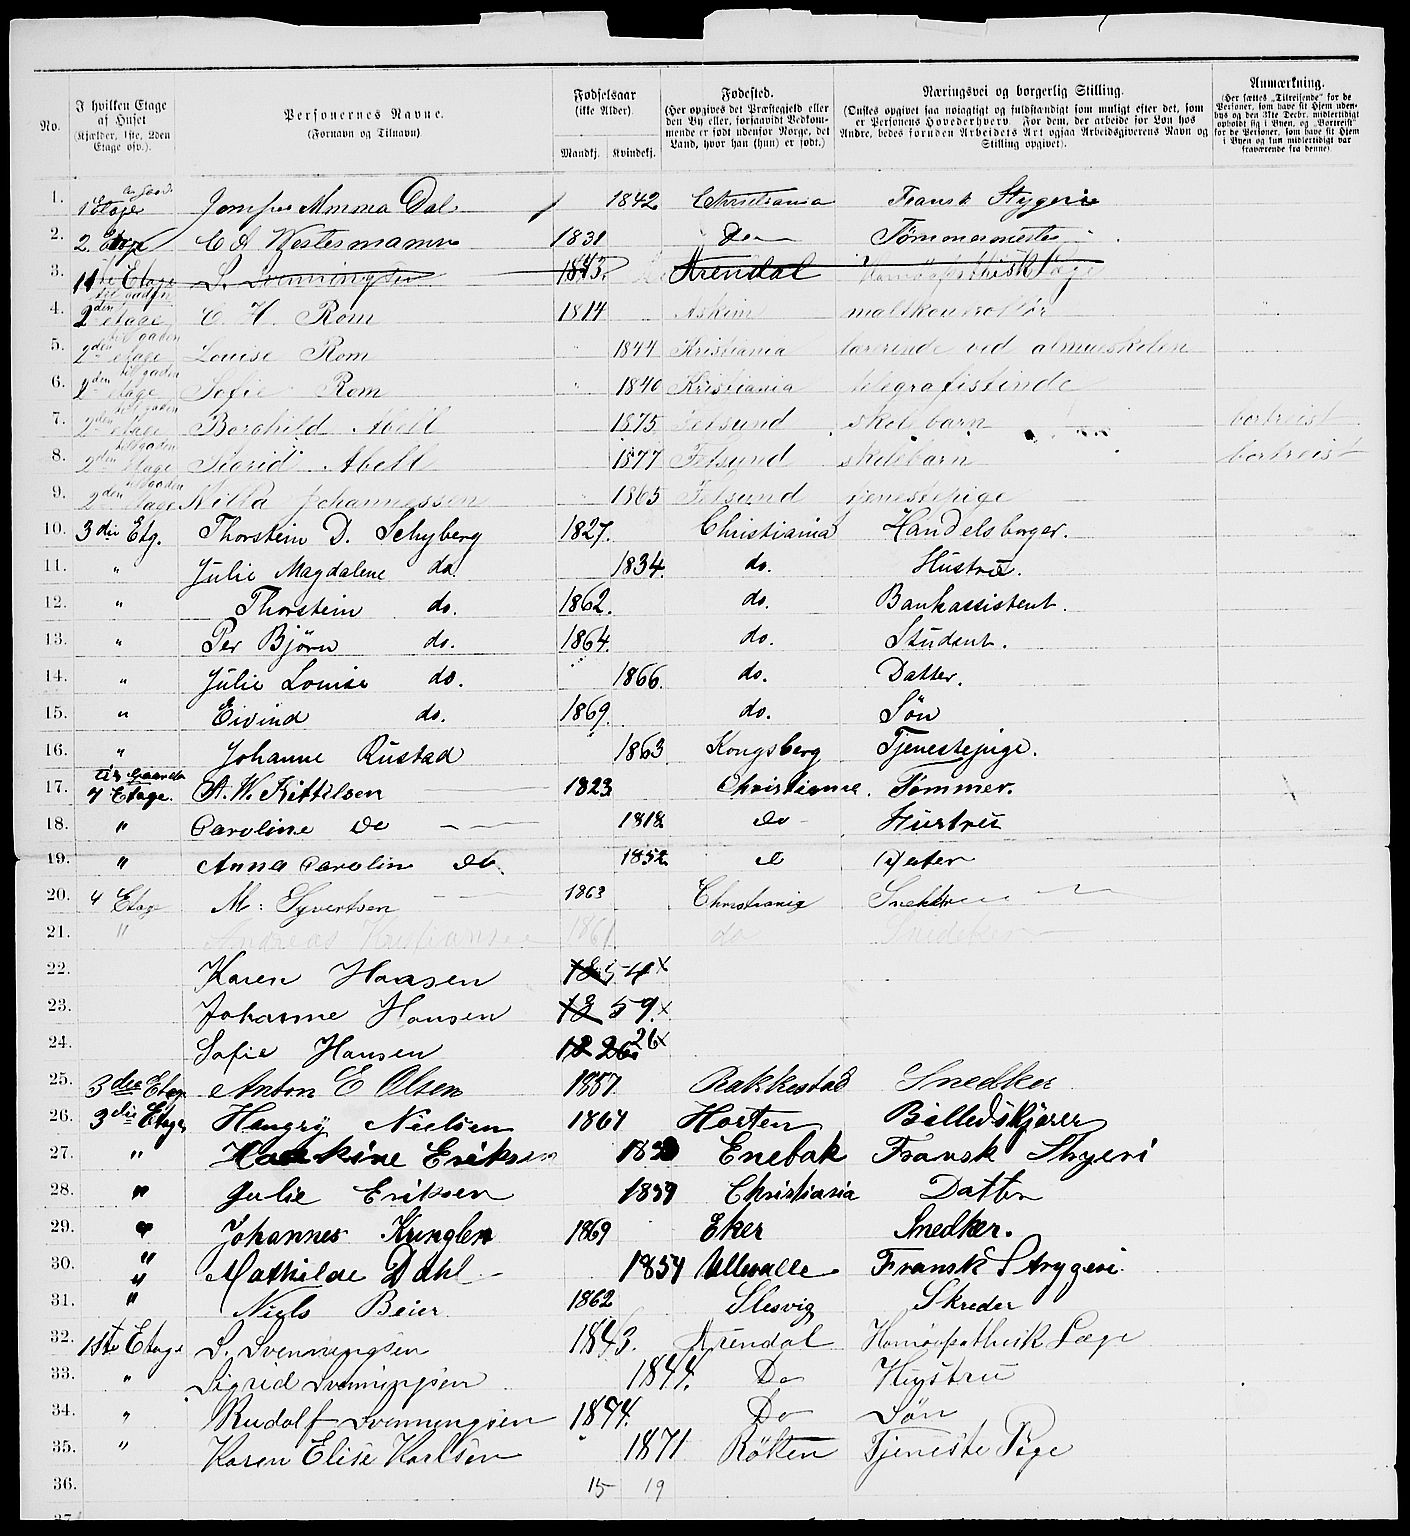 No.
I hvilken Etage af Huset (Kjælder, 1ste, 2den Etage osv.).
Personernes Navne. (Fornavn og Tilnavn).
Fødselsaar (ikke Alder). Mandkj. Kvindekj.
Fødested. (Her opgives det Præstegjeld eller den By eller, forsaavidt Vedkommende er født udenfor Norge, det Land, hvor han (hun) er født.)
Næringsvei og borgerlig Stilling. (Ønskes opgivet saa nøiagtigt og fuldstændigt som muligt efter det, som er Personens Hovederhverv. For dem, der arbeide for Løn hos Andre, bedes foruden Arbeidets Art ogsaa Arbeidsgiverens Navn og Stilling opgivet).
Anmærkning. (Her sættes „Tilreisende“ for de Personer, som have sit Hjem udenbys og den 31te Decbr. midlertidigt opholdt sig i Byen, og „Bortreist“ for de Personer, som have sit Hjem i Byen og kun midlertidigt var fraværende fra denne)
1. 1 Etage Jomfru Amma Dal 1842 Christiania Fransk Strygerie
2. 2. Etage C A Westermann 1831 Do Tømmermester
3. 1ste Etage S. Svenningsen 1843. Arendal Homöopathisk Læge
4. 2den etage til gaden C. H. Rom 1814 Askim maltkontrollør
5. 2den etage til gaden Louise Rom " 1844 Kristiania lærerinde ved almueskolen
6. 2den etage til gaden Sofie Rom " 1846 Kristiania telegrafistinde
7. 2den etage til gaden Borghild Abell 1875 Fetsund skolebarn bortreist
8. 2den etage til gaden Sigrid Abell 1877 Fetsund skolebarn bortreist
9. 2den etage til gaden Johannessen 1865 Fetsund tjenestepige
10. 3die Etg. Thorstein D. Schyberg 1827. Christiania Handelsborger.
11. " Julie Magdalene do. 1834. do. Hustru.
12. " Thorstein do. 1862. do. Bankassistent.
13. " Per Bjørn do. 1864. do. Student.
14. " Julie Louise do. 1866. do. Datter.
15. " Eivind do. 1869. do. Søn
16. " Johanne Rustad 1863 Kongsberg Tjenestepige.
17. 4 Etage. A. W. Kittilsen 1823 Christianie. Tømmer.
18. " Caroline Do 1818 do Hustru
19. " Anna Carolin do. 1852 d Dater
20. 4 Etage M: Syvertsen 1863 Christiania
21. " Andreas Kristiansen 1861 do Snedeker
22. Karen Hansen 1854 x
23. Johanne Hansen 1859. x
24. Sofie Hansen 26 x
25. 3die Etage Anton E Olsen 1857 Rakkestad Snedker
26. 3die Etage Hengry Nielsen 1864 Horten Billedskjærer
27. " Eriksen Enebak Fransk Strygeri
28. " Julie Eriksen 1859 Christiania Datter
29. " Johannes Kringlen 1869 Eker Snedker.
30. " Mathilde Dahl 1854 Ullevalle Fransk Strygeri
31. " Niels Beier 1862 Slesvig Skreder
32. 1ste Etage S. Svenningsen 1843. Arendal Homöopathisk Læge
33. " Sigrid Svenningsen 1844. Do Hustru
34. " Rudolf Svenningsen 1874. Do Søn
35. " Karen Elise Karlsen 1871 Røken Tjeneste Pige
36. 15 19
37.